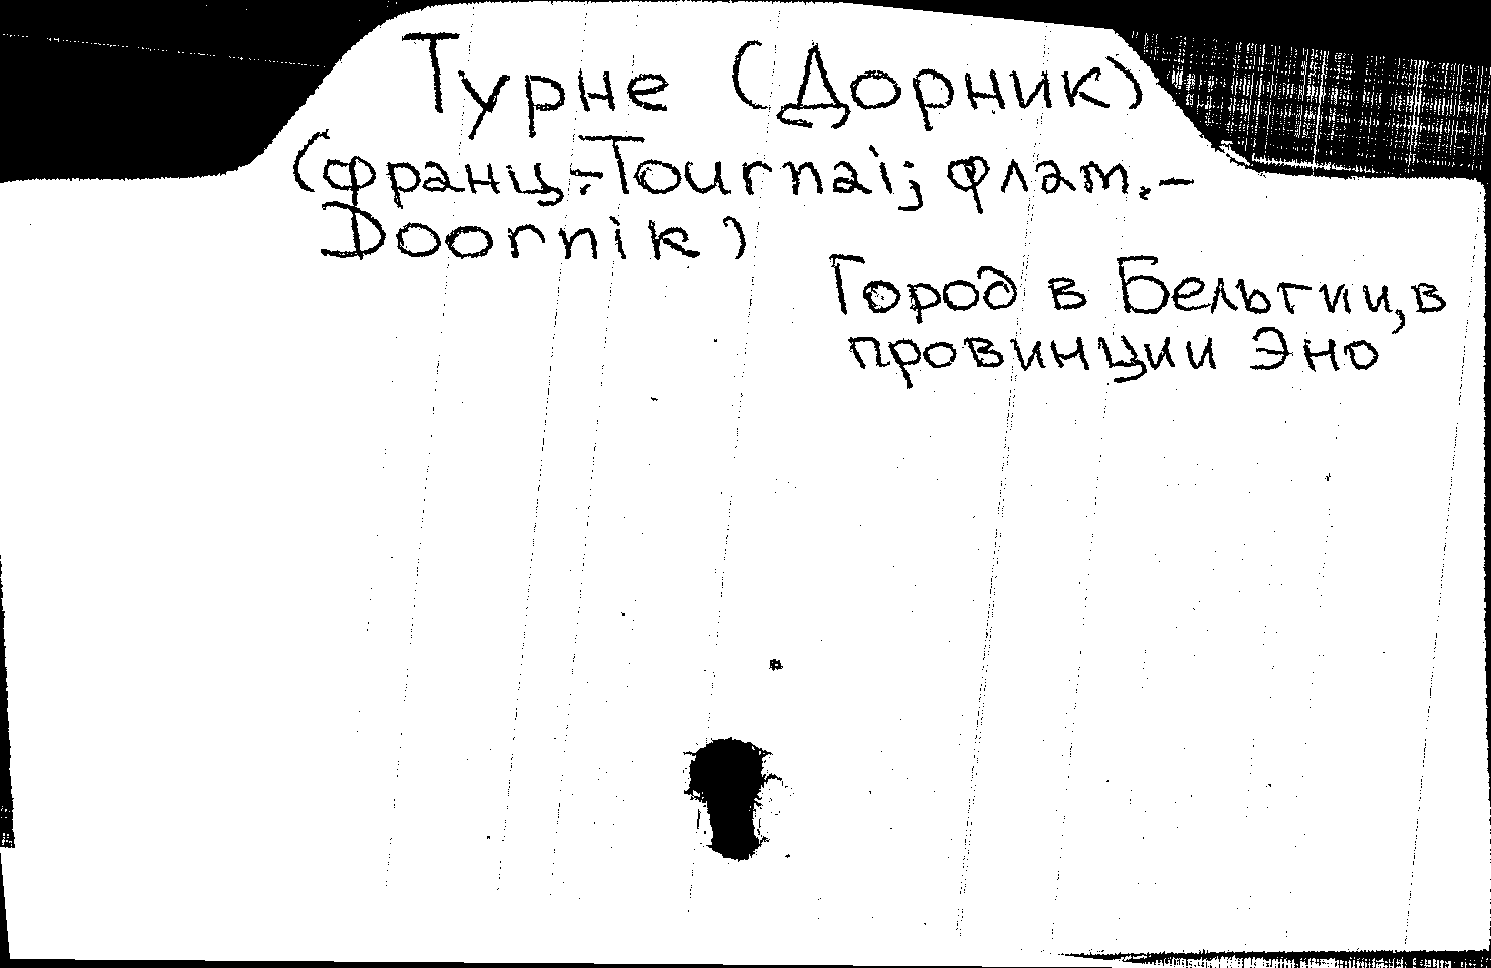 Турне (Дорник)
(франц.-Tournai; флам.-
Doornik)
Город в Бельгии, в
провинции Эно